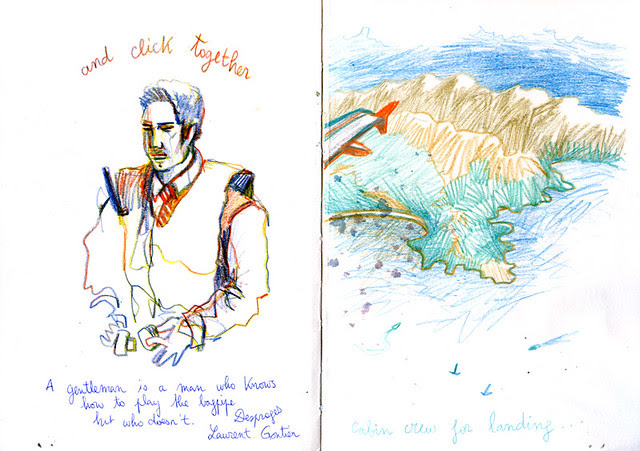 and click together
A gentleman is a man who knows
how to play the bagpipe
but who doesn't. Desproges
Laurent Gontier
cabin crew for landing...